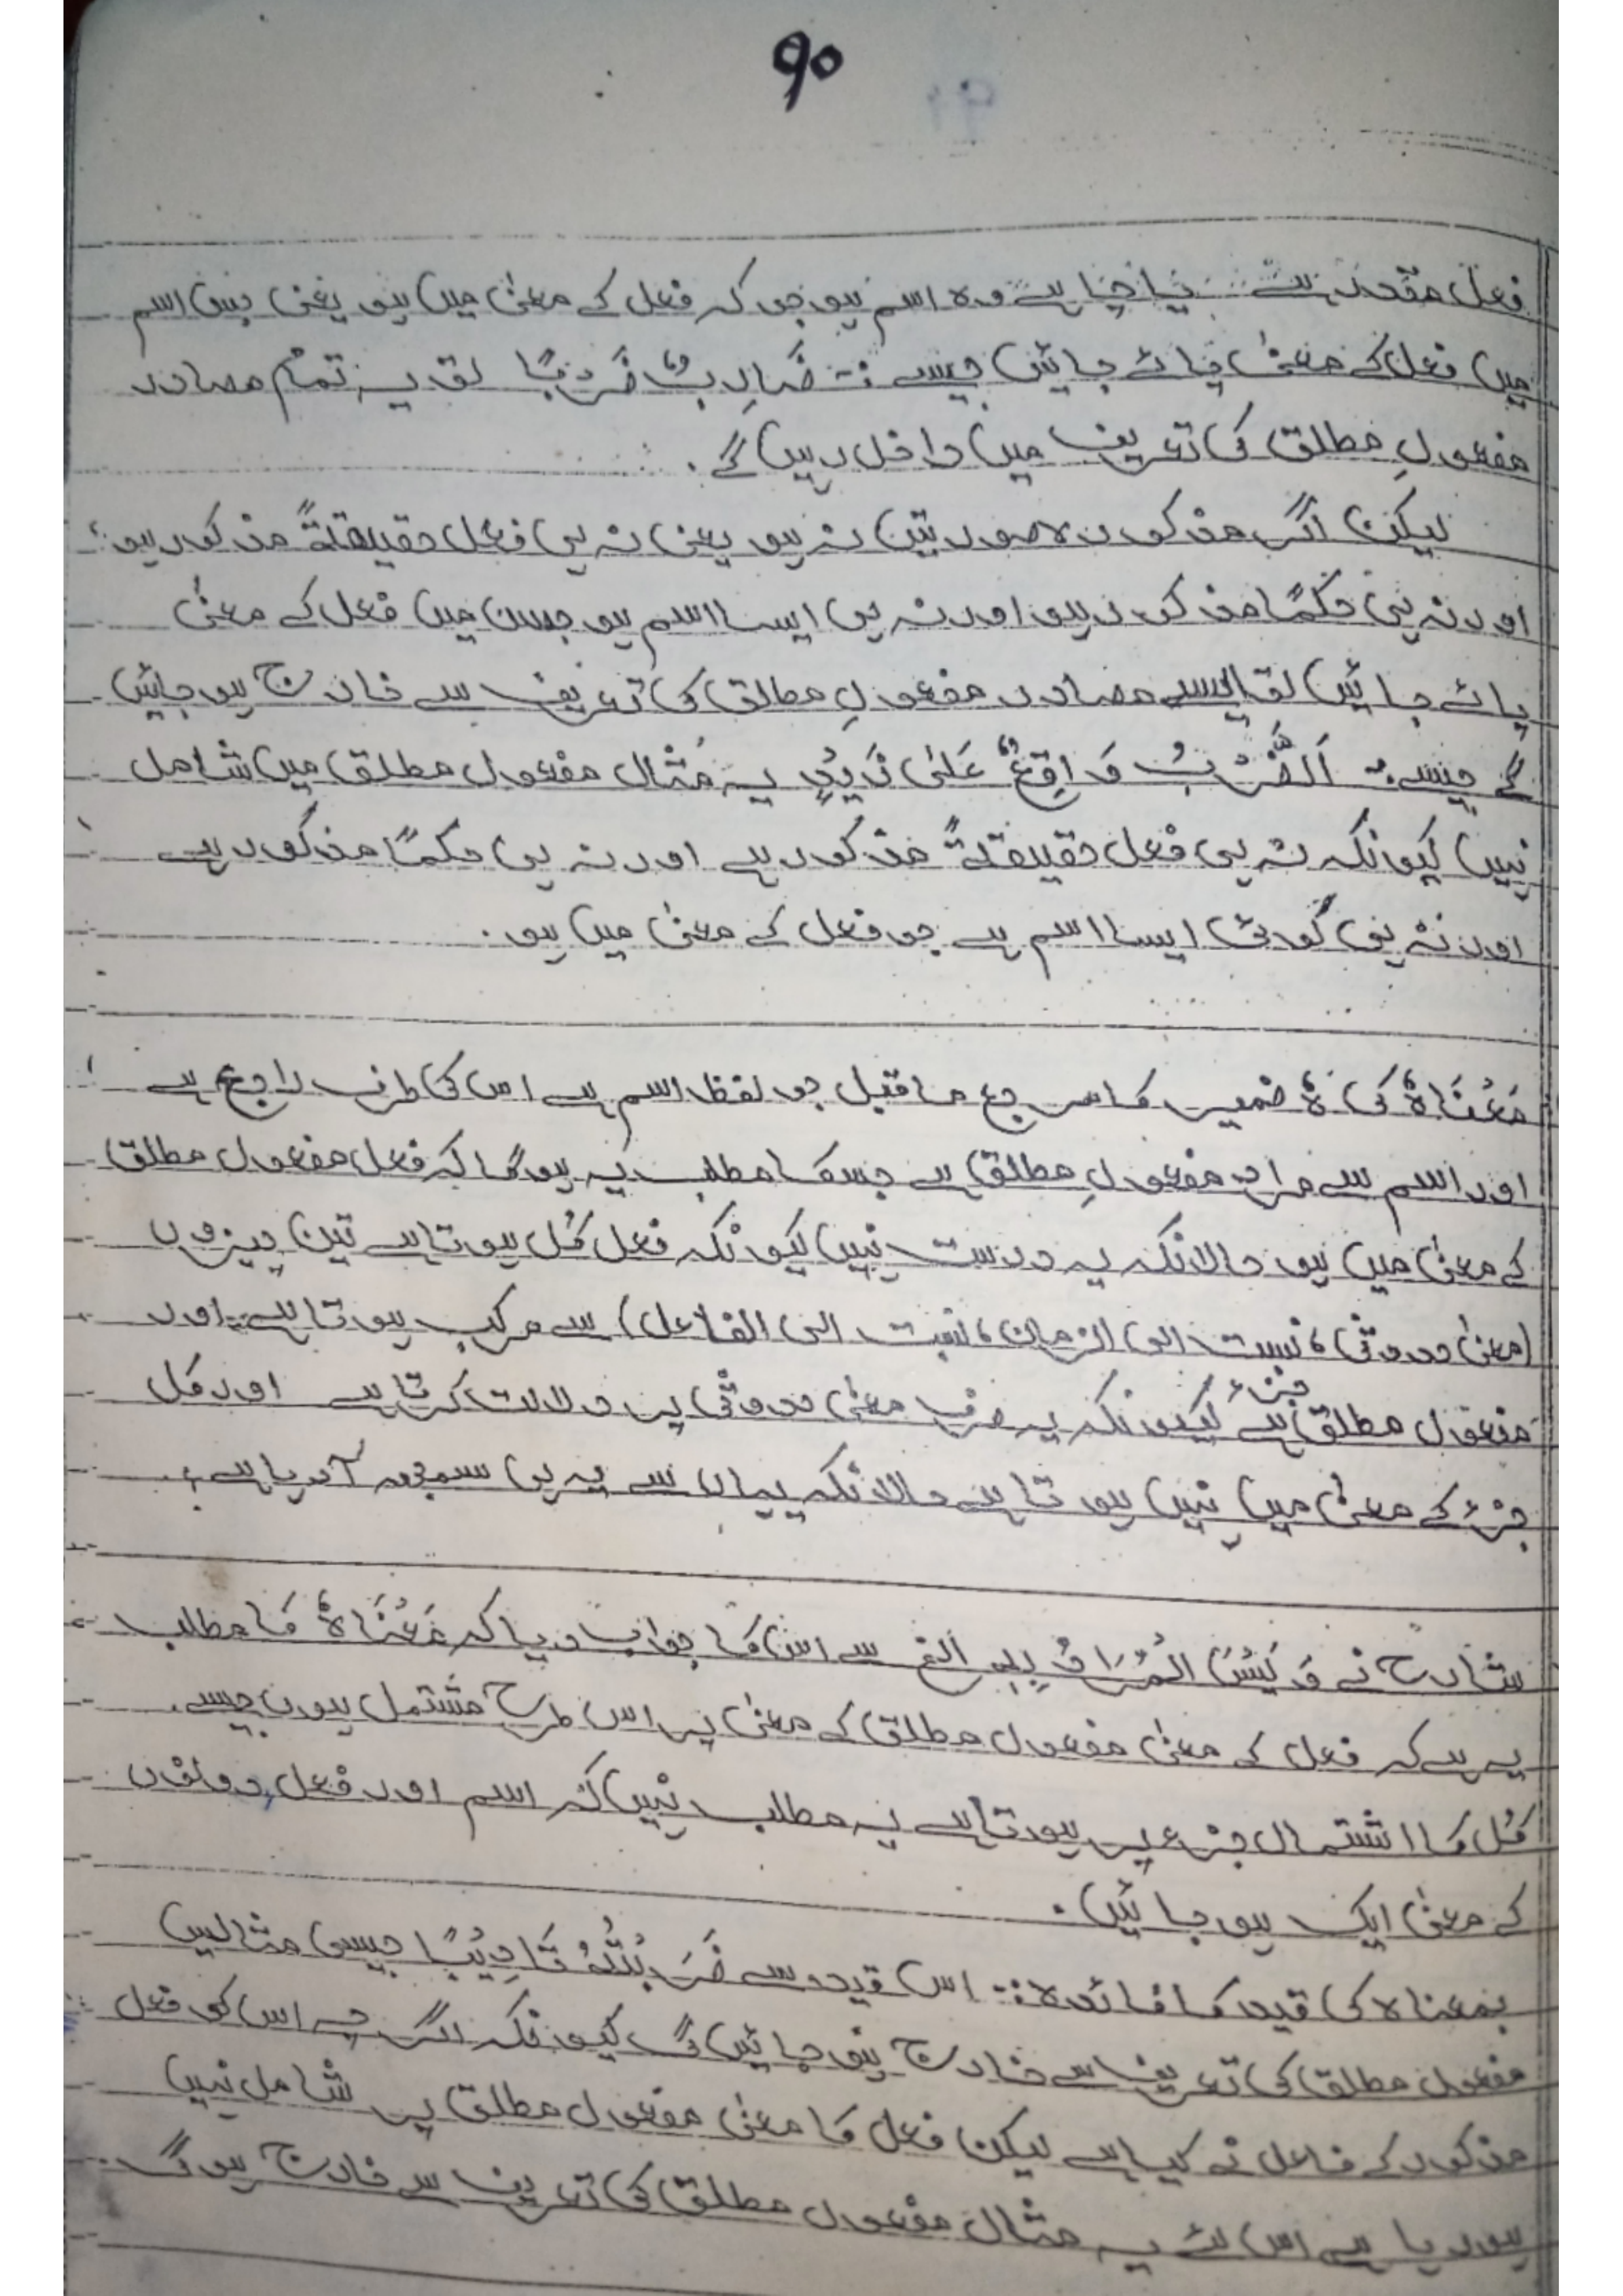 ۹۰
فعل مقدر ہے۔ یا چاہے وہ اسم ہو جو کہ فعل کے معنیٰ میں ہو یعنی جس اسم
میں فعل کے معنیٰ پائے جائیں جیسے :- ضَارِبٌ ضَرْبًا تو یہ تمام مصادر
مفعولِ مطلق کی تعریف میں داخل رہیں گے۔
لیکن اگر مذکورہ صورتیں نہ ہو یعنی نہ ہی فعل حقیقتًہ مذکور ہو،
اور نہ ہی حکمًا مذکور ہو اور نہ ہی ایسا اسم ہو جس میں فعل کے معنیٰ
پائے جائیں تو ایسے مصادر مفعولِ مطلق کی تعریف سے خارج ہو جائیں
گے جیسے :- اَلضَّرْبُ وَاقِعٌ عَلٰی زَیْدٍ یہ مثال مفعول مطلق میں شامل
نہیں کیونکہ نہ ہی فعل حقیقتًہ مذکور ہے اور نہ ہی حکمًا مذکور ہے
اور نہ ہی کوئی ایسا اسم ہے جو فعل کے معنیٰ میں ہو۔
مَعْنَاہُ کی ہُ ضمیر کا مرجع ماقبل جو لفظ اسم ہے اس کی طرف راجع ہے
اور اسم سے مراد مفعولِ مطلق ہے جسکا مطلب یہ ہوگا کہ فعل مفعول مطلق
کے معنیٰ میں ہو حالانکہ یہ درست نہیں کیونکہ فعل کُل ہوتا ہے تین چیزوں
(معنیٰ حدوثی، نسبت الی الزمان، نسبت الی الفاعل) سے مرکب ہوتا ہے۔ اور
مفعول مطلق جزء ہے کیونکہ یہ صرف معنیٰ حدوثی پر دلالت کرتا ہے اور کل
جزء کے معنیٰ میں نہیں ہوتا ہے حالانکہ یہاں سے یہ ہی سمجھ آ رہا ہے،
شارح نے وَلَیْسَ الْمُرَادُ بِہٖ الخ سے اس کا جواب دیا کہ مَعْنَاہُ کا مطلب
یہ ہے کہ فعل کے معنیٰ مفعول مطلق کے معنیٰ پر اس طرح مشتمل ہوں جیسے
کُل کا اشتمال جزء پر ہوتا ہے یہ مطلب نہیں کہ اسم اور فعل دونوں
کے معنیٰ ایک ہو جائیں۔
بمعناہ کی قید کا فائدہ :- اس قید سے ضَرَبْتُہٗ تَادِیْبًا جیسی مثالیں
مفعول مطلق کی تعریف سے خارج ہو جائیں گی کیونکہ اگرچہ اس کو فعل
مذکور کے فاعل نے کیا ہے لیکن فعل کا معنیٰ مفعول مطلق پر شامل نہیں
ہو رہا ہے اس لئے یہ مثال مفعول مطلق کی تعریف سے خارج ہوگی